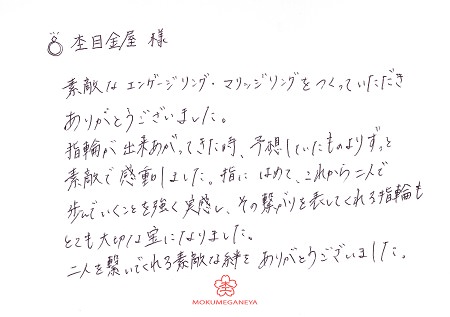 杢目金屋 様
素敵なエンゲージリング・マリッジリングをつくっていただき
ありがとうございました。
指輪が出来あがってきた時、予想していたものよりずっと
素敵で感動しました。指にはめて、これから二人で
歩んでいくことを強く実感し、その繋がりを表してくれる指輪も
とても大切な宝になりました。
二人を繋いでくれる素敵な絆を ありがとうございました。
MOKUMEGANEYA